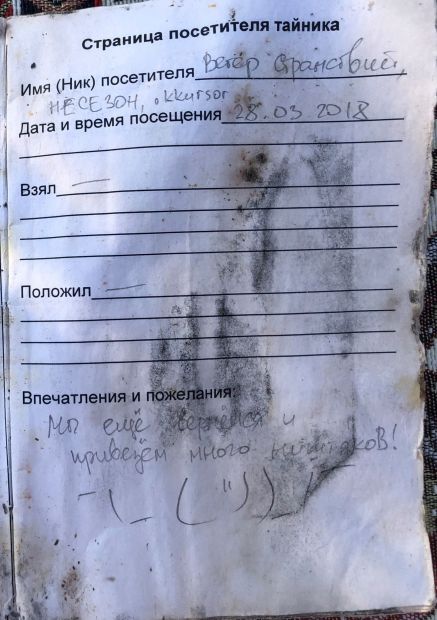 Страница посетителя тайника
Имя (Ник) посетителя Ветер Странствий,
НЕСЕЗОН, .kkursor
Дата и время посещения 28.03.2018
Взял —
Положил —
Впечатления и пожелания:
Мы ещё вернёмся и
привезём много ништяков!
¯\_( ")_/¯